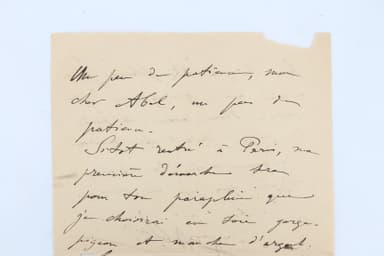 Un peu de patience, mon
cher Abel, un peu de
patience.
Sitôt rentré à Paris, ma
première démarche sera
pour ton parapluie que
je choisirai en soie gorge-
pigeon et manche d'argent.